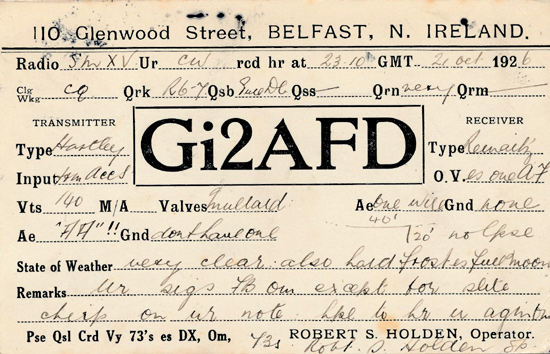 110 Glenwood Street, BELFAST, N. IRELAND.
Radio Smxv Ur cw rcd hr at 23.10 GMT 21 oct 1926
Clg
Wkg cq Qrk R6-7 Qsb Qss Qrn very Qrm
TRANSMITTER
RECEIVER
Type Hartley
Gi2AFD
Type Reinartz
Input from accs
O.V. es one AF
Vts 140 M/A Valves mullard Ae one wire Gnd none
40'
Ae "AA"!! Gnd dont have one 20' no lfse
State of Weather very clear also hard frost es full moon
Remarks Ur sigs FB om except for slite
chirp on ur note hpe to hr u agn
Pse Qsl Crd Vy 73's es DX, Om, 73s ROBERT S. HOLDEN, Operator.
Robt. S. Holden